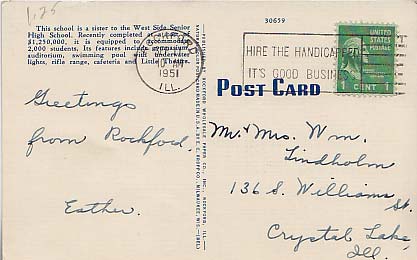 1.25
This school is a sister to the West Side Senior
High School. Recently completed at a cost of
$1,250,000, it is equipped to accommodate
2,000 students. Its features include gymnasium,
auditorium, swimming pool with underwater
lights, rifle range, cafeteria and Little Theatre.
30659
1951
ILL.
HIRE THE HANDICAPPED
IT'S GOOD BUSINESS
U.S. POSTAGE
1 CENT 1
POST CARD
Greetings
from Rockford.
Esther.
Mr. & Mrs. Wm.
Lindholm
136 S. Williams
St.
Crystal Lake,
Ill.